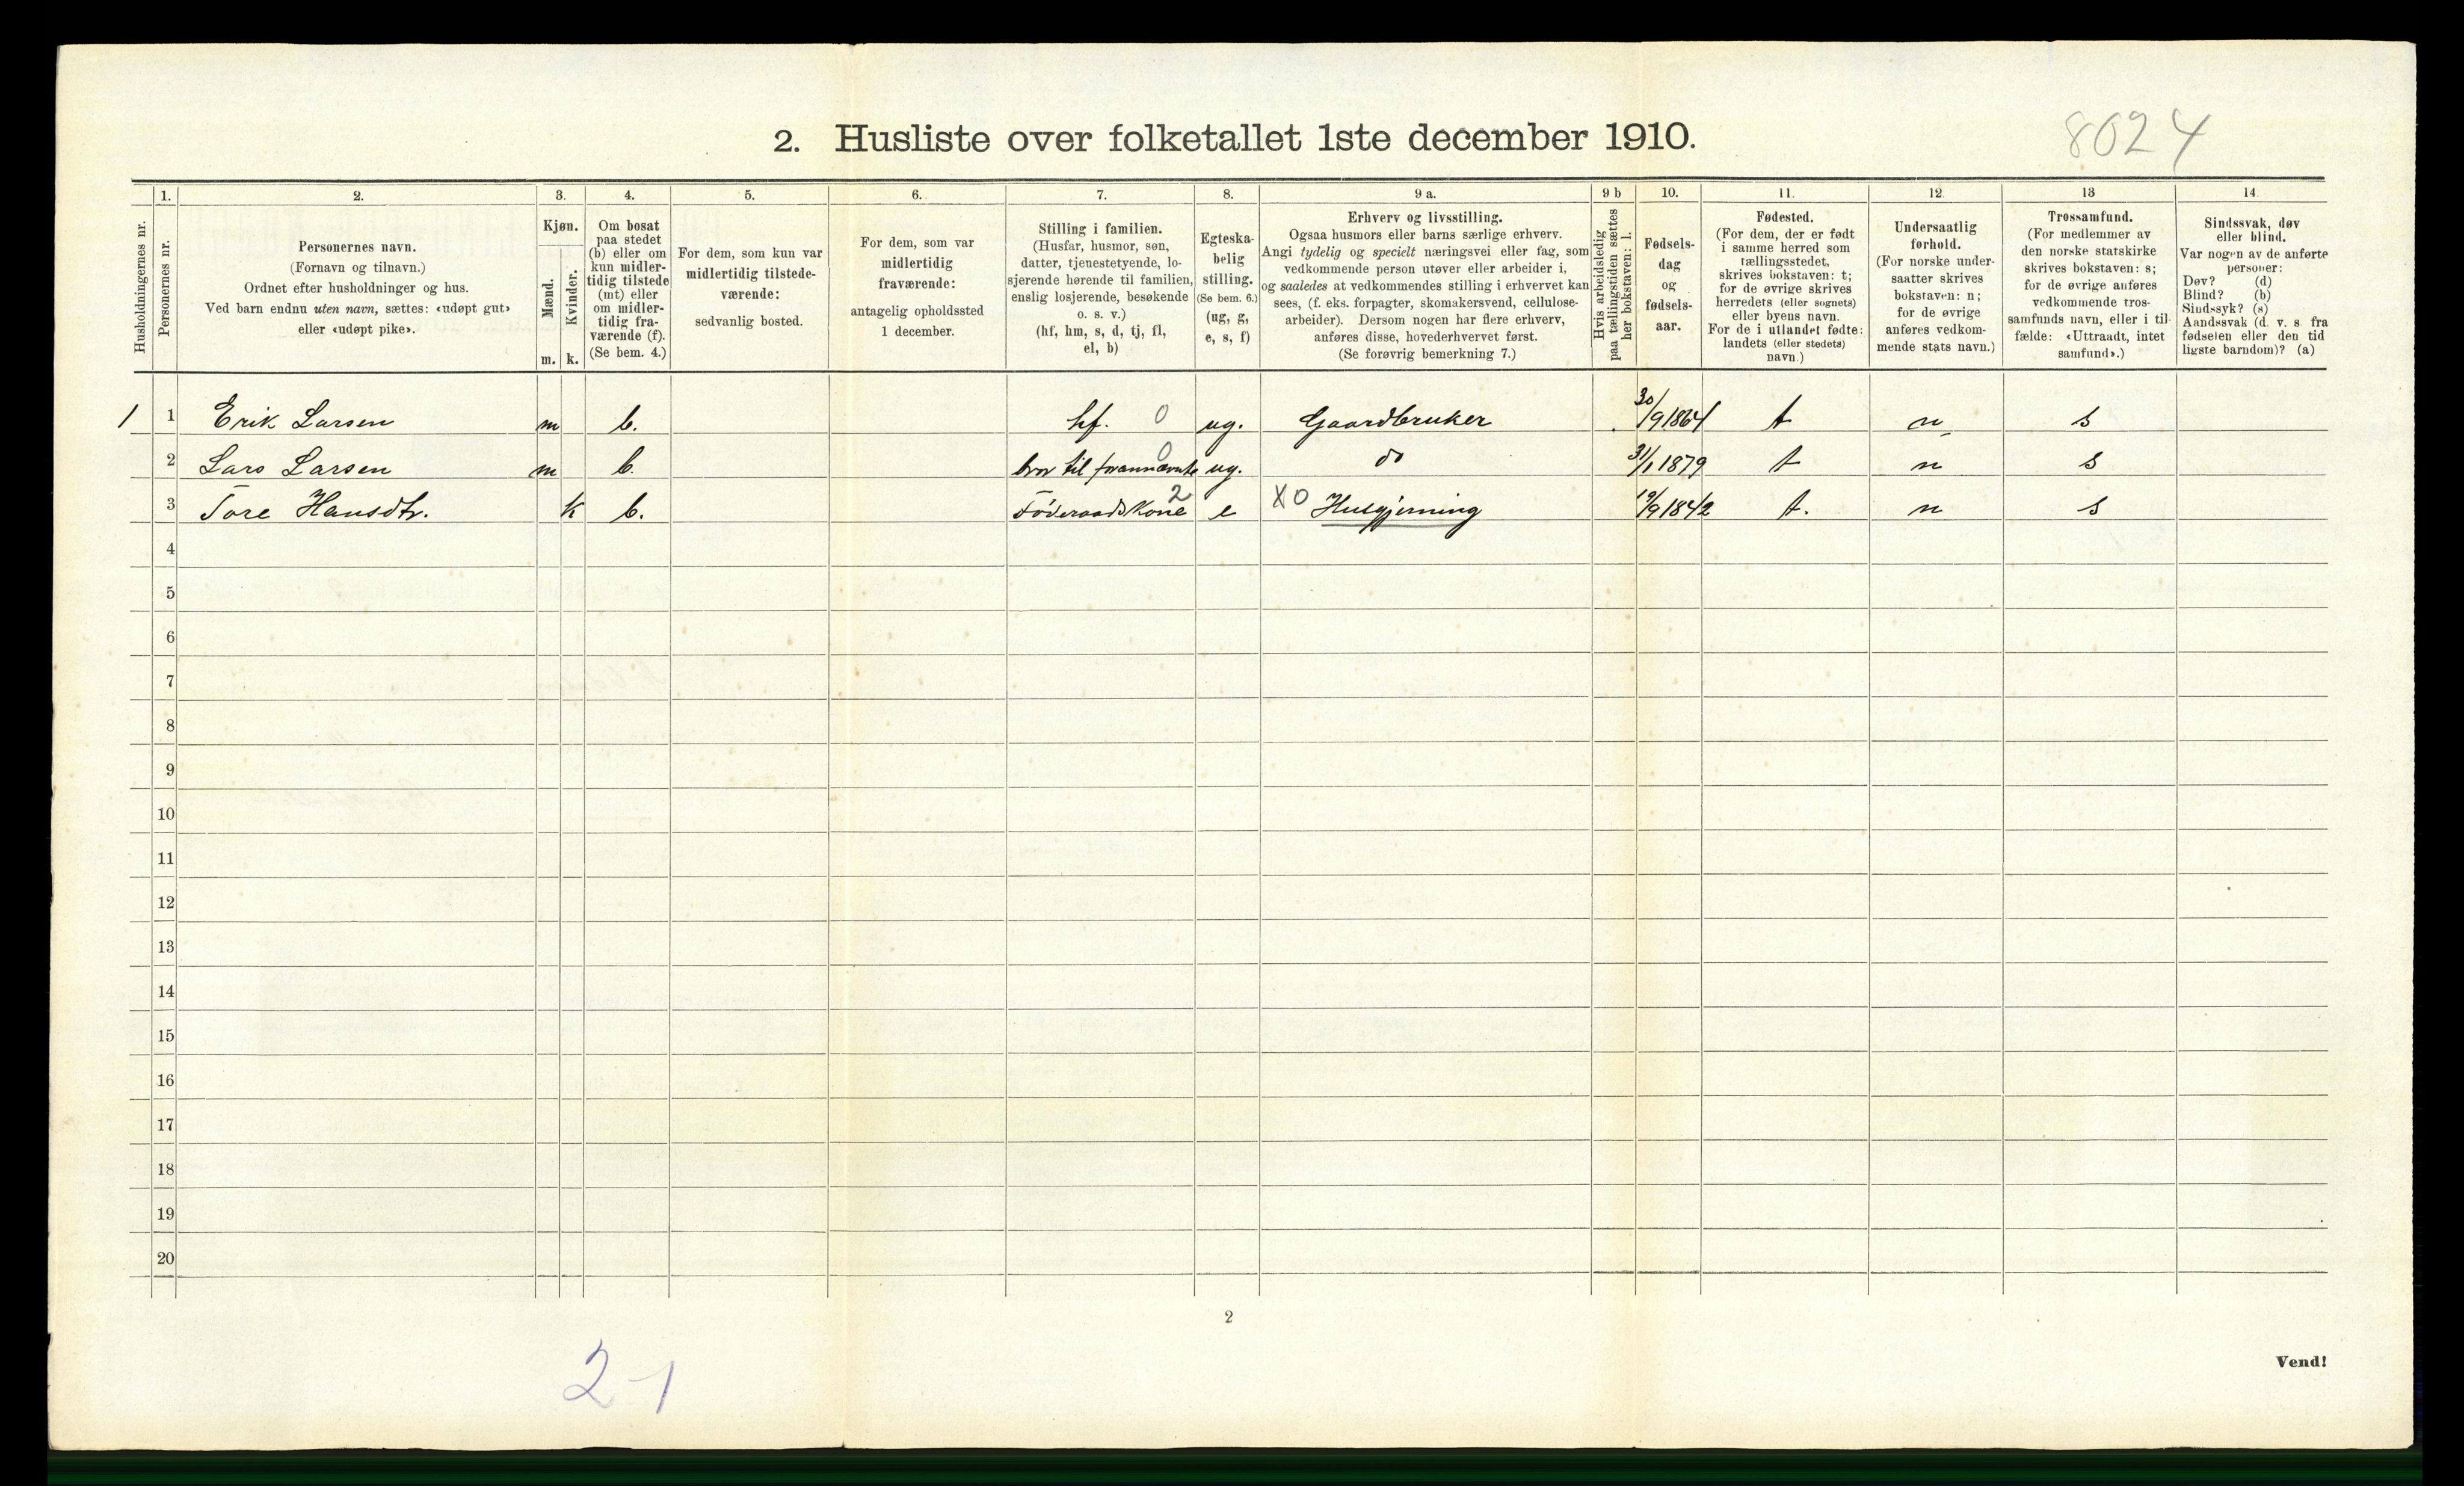 8024
2. Husliste over folketallet 1ste december 1910.
1. 2. 3. 4. 5. 6. 7. 8. 9 a. 9 b 10. 11. 12. 13 14
Husholdningernes nr.
Personernes nr.
Personernes navn.
(Fornavn og tilnavn.)
Ordnet efter husholdninger og hus.
Ved barn endnu uten navn, sættes: «udøpt gut»
eller «udøpt pike».
Kjøn.
Mænd.
Kvinder.
m. k.
Om bosat
paa stedet
(b) eller om
kun midler-
tidig tilstede
(mt) eller
om midler-
tidig fra-
værende (f).
(Se bem. 4.)
For dem, som kun var
midlertidig tilstede-
værende:
sedvanlig bosted.
For dem, som var
midlertidig
fraværende:
antagelig opholdssted
1 december.
Stilling i familien.
(Husfar, husmor, søn,
datter, tjenestetyende, lo-
sjerende hørende til familien,
enslig losjerende, besøkende
o. s. v.)
(hf, hm, s, d, tj, fl,
el, b)
Egteska-
belig
stilling.
(Se bem. 6.)
(ug, g,
e, s, f)
Erhverv og livsstilling.
Ogsaa husmors eller barns særlige erhverv.
Angi tydelig og specielt næringsvei eller fag, som
vedkommende person utøver eller arbeider i,
og saaledes at vedkommendes stilling i erhvervet kan
sees, (f. eks. forpagter, skomakersvend, cellulose-
arbeider). Dersom nogen har flere erhverv,
anføres disse, hovederhvervet først.
(Se forøvrig bemerkning 7.)
Hvis arbeidsledig
paa tællingstiden sættes
her bokstaven: l.
Fødsels-
dag
og
fødsels-
aar.
Fødested.
(For dem, der er født
i samme herred som
tællingsstedet,
skrives bokstaven: t;
for de øvrige skrives
herredets (eller sognets)
eller byens navn.
For de i utlandet fødte:
landets (eller stedets)
navn.)
Undersaatlig
forhold.
(For norske under-
saatter skrives
bokstaven: n;
for de øvrige
anføres vedkom-
mende stats navn.)
Trossamfund.
(For medlemmer av
den norske statskirke
skrives bokstaven: s;
for de øvrige anføres
vedkommende tros-
samfunds navn, eller i til-
fælde: «Uttraadt, intet
samfund».)
Sindssvak, døv
eller blind.
Var nogen av de anførte
personer:
Døv? (d)
Blind? (b)
Sindssyk? (s)
Aandssvak (d. v. s. fra
fødselen eller den tid
ligste barndom)? (a)
1 1 Erik Larsen m b. hf. 0 ug. Gaardbruker 30/9 1864 t n s
2 Lars Larsen m b. bror til forannævnte 0 ug. do 31/1 1879 t n s
3 Tore Hansdtr. k b. Föderaadskone 2 e X0 Husgjerning 19/9 1842 t. n s
4
5
6
7
8
9
10
11
12
13
14
15
16
17
18
19
20
2
Vend!
2-1